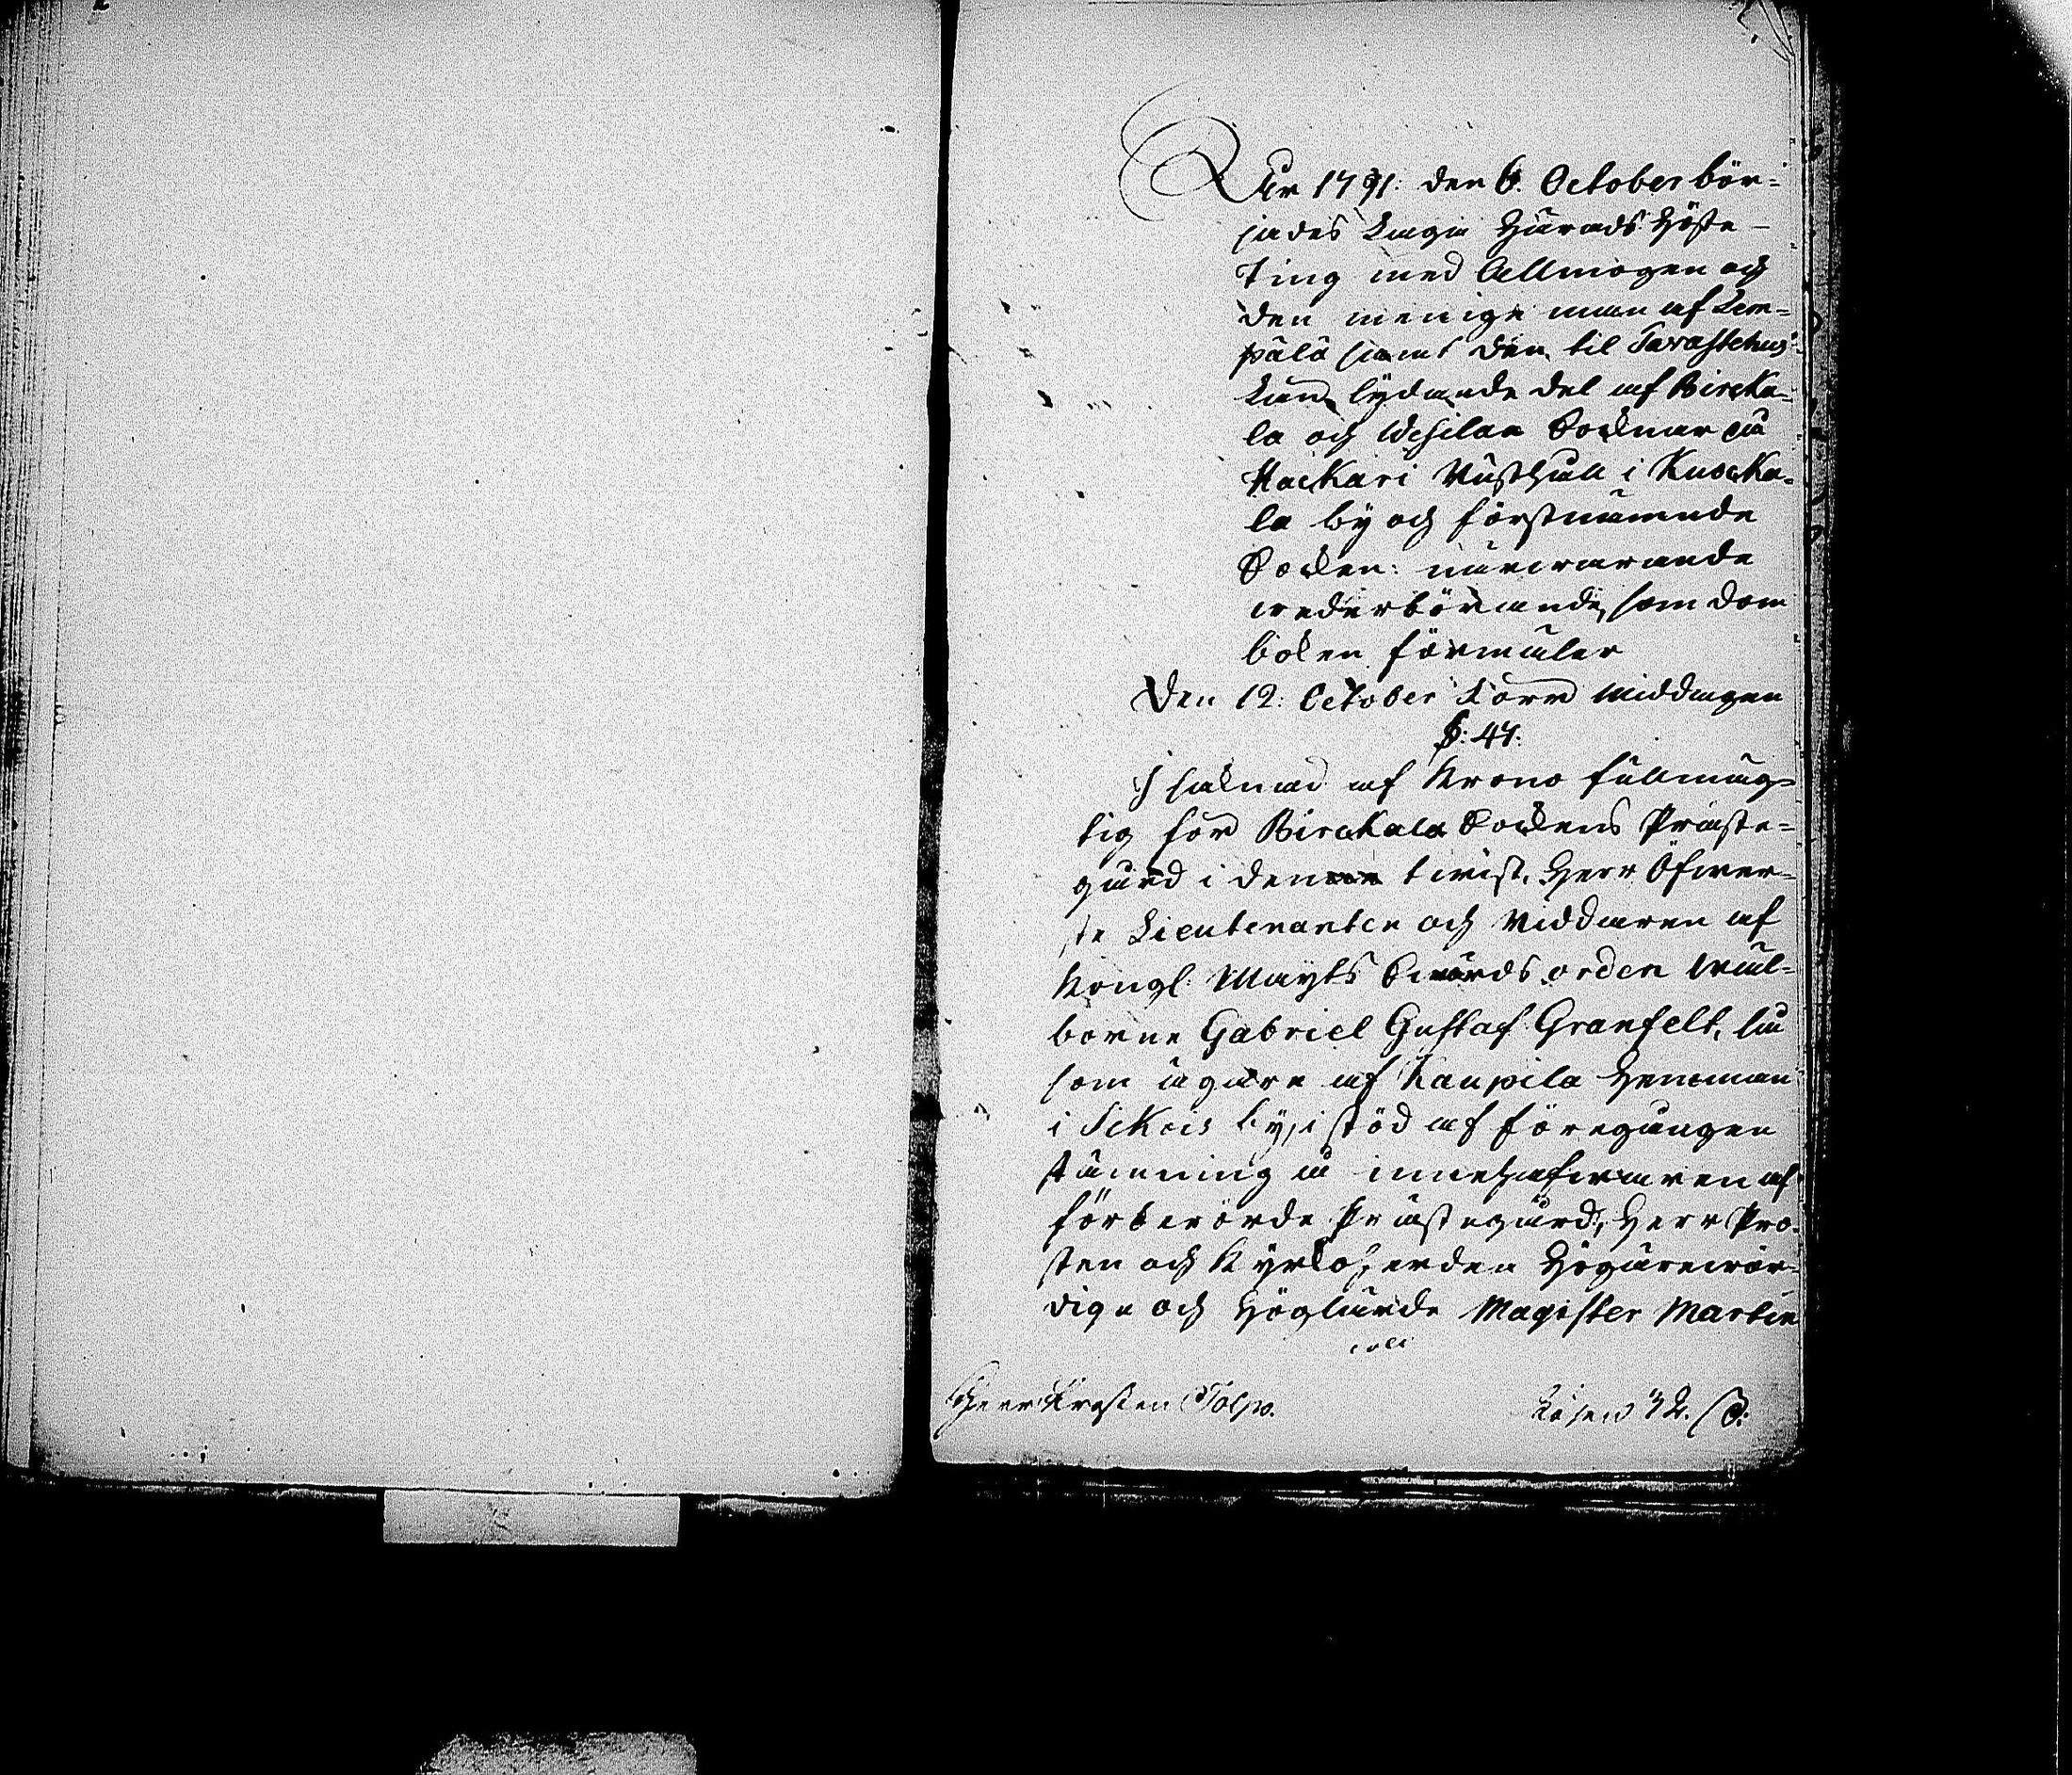 Åhr 1791. den 6. October bör=
jades laga Härads Höste-
Ting med Allmogen och
den menige man af Lem=
pälä samt den til Tavastehus
Län lydande del af Bircka=
la och Wesilax Socknar å
Hackari Rusthåll i Kuocka=
la by och förstnämnde
Socken: närwarande
wederbörande, som dom
boken förmäler
Den 12. October Förmiddagen
§: 47.
I saknad af Krono fullmäg=
tig för Birckala Sockens Präste=
gård i denne twist, Herr Öfwer=
ste Lieutenanten och Riddaren af
Kongl: Mayts Swärds orden Wäl=
borne Gabriel Gustaf Granfelt, så
som ägare af Kaupila Hemman
i Sikois by, i stöd af föregången
stämning å innehafwaren af
förberörde Prästegård, Herr Pro=
sten och Kyrkoherden Högärewör=
dige och Höglärde Magister Martin
Herr Prosten Tolpo.
Lösen 32. s: